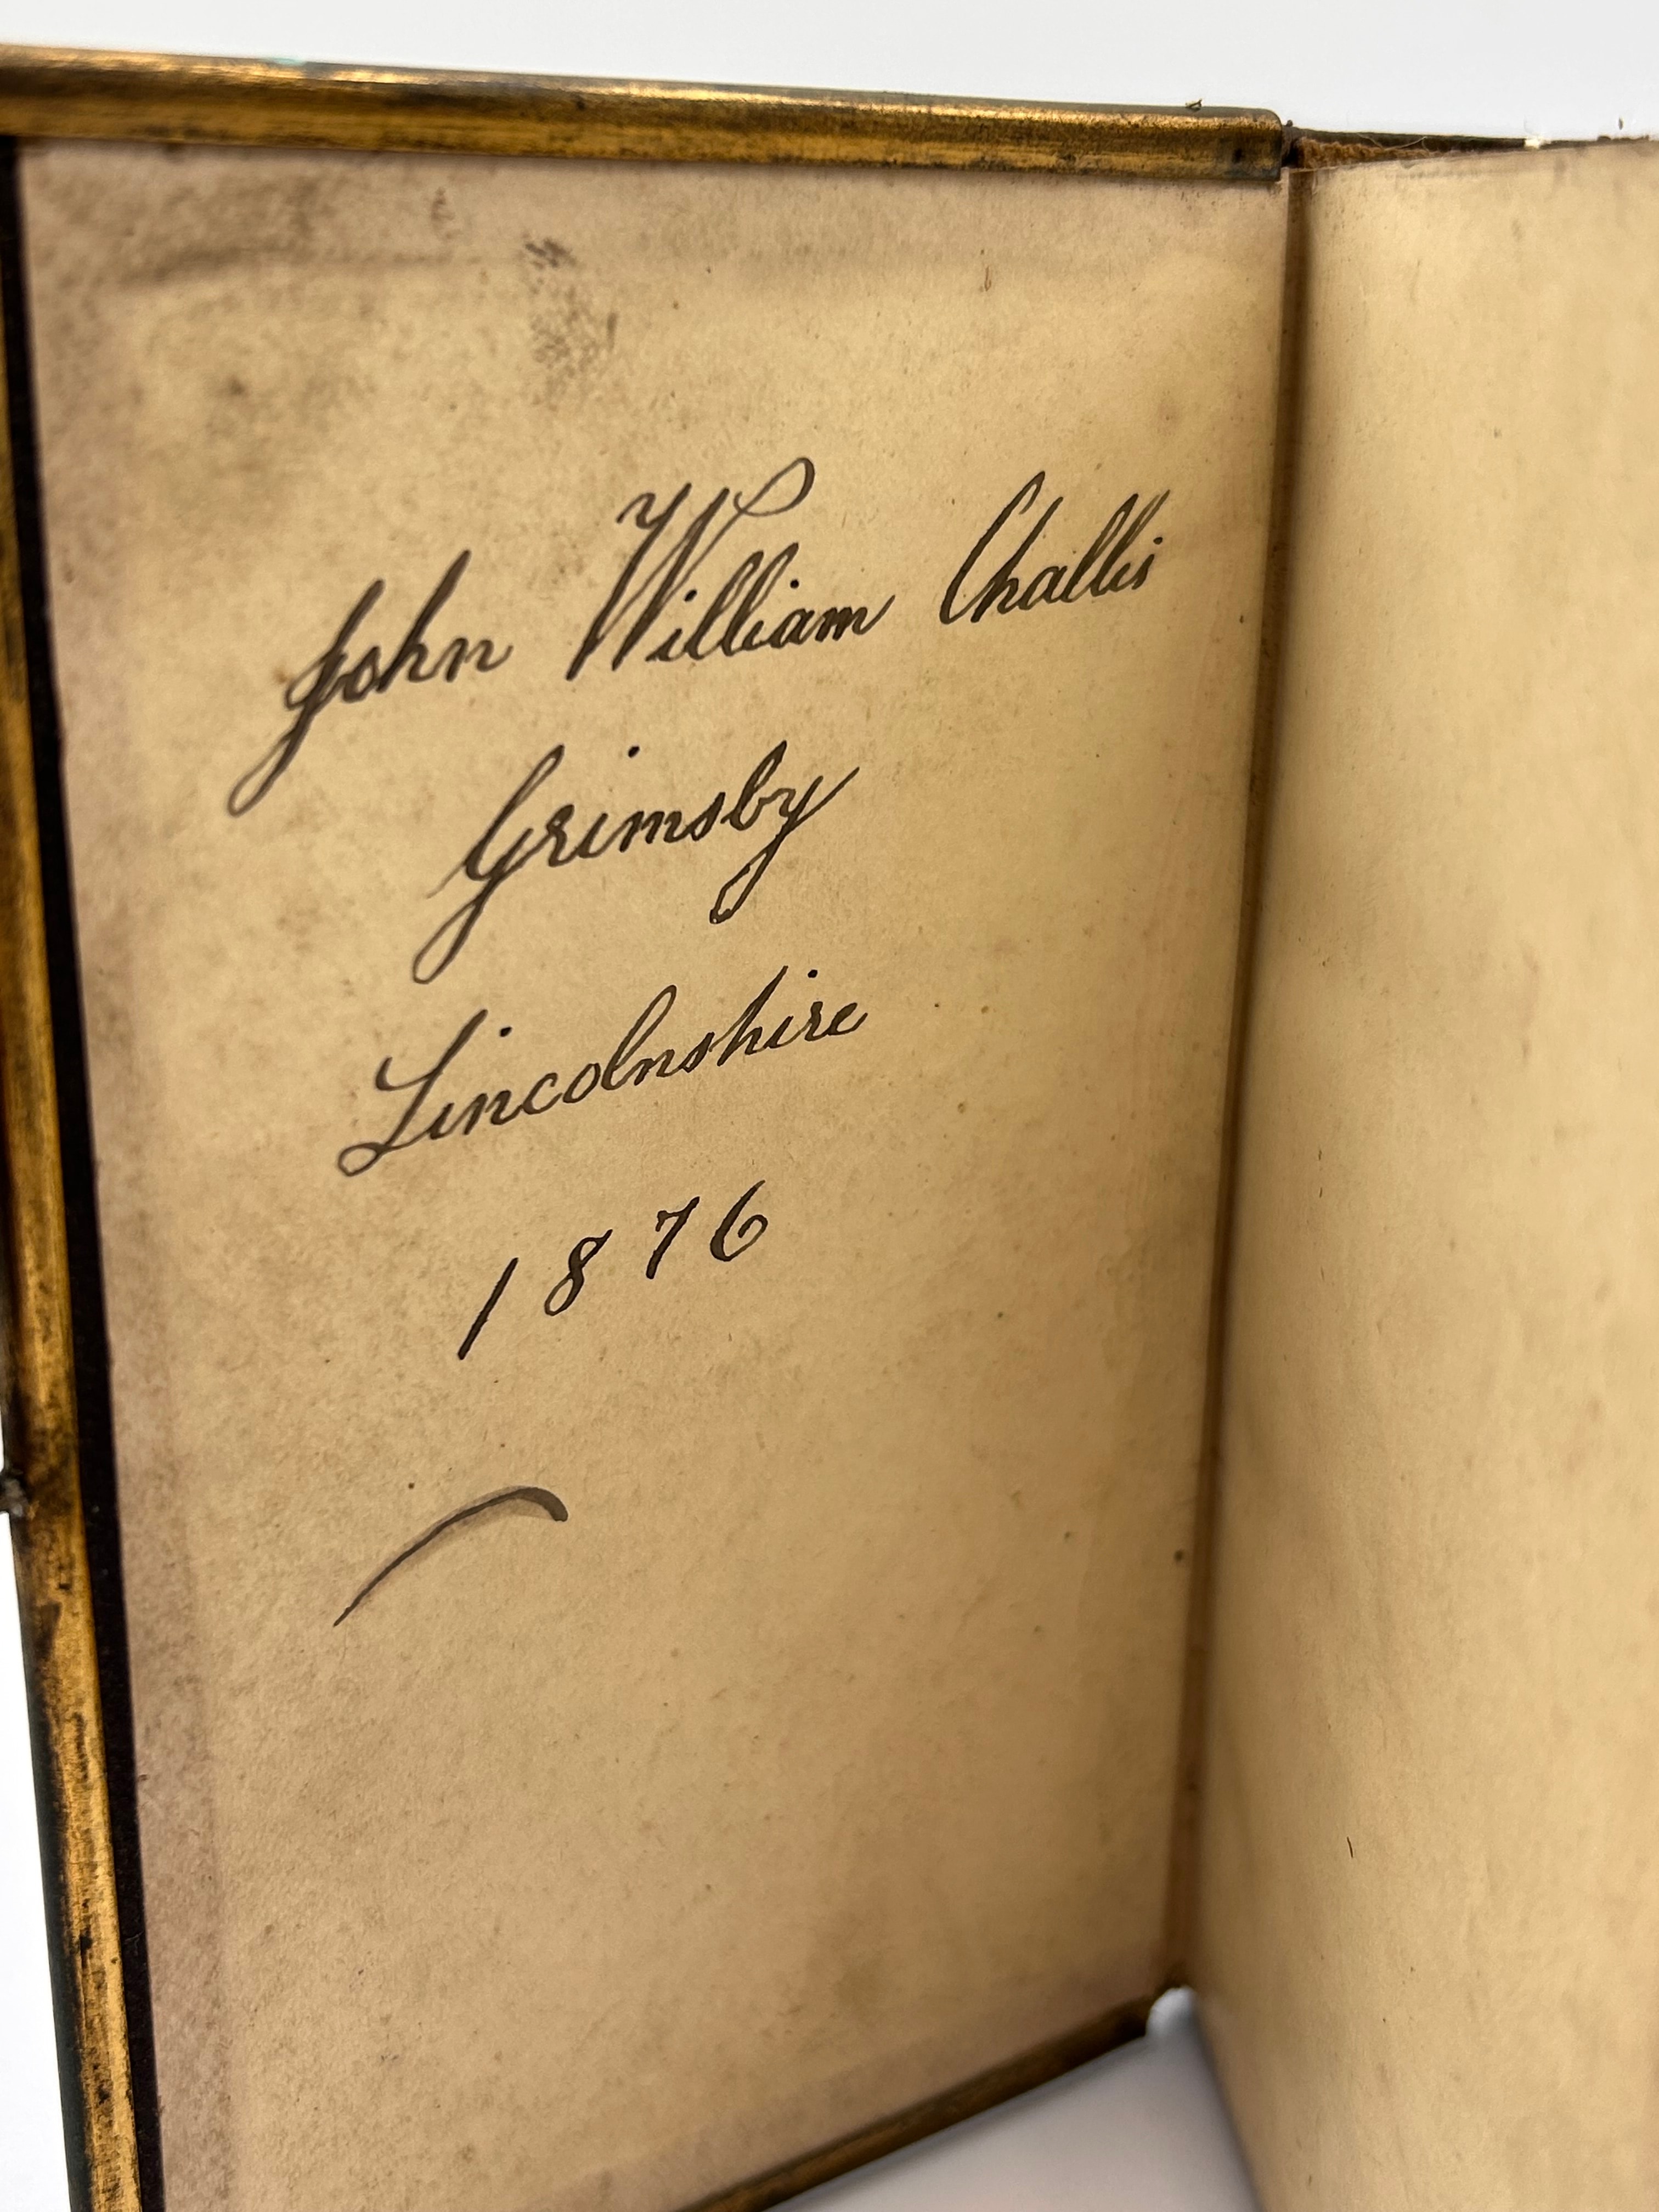 John William Challis
Grimsby
Lincolnshire
1876